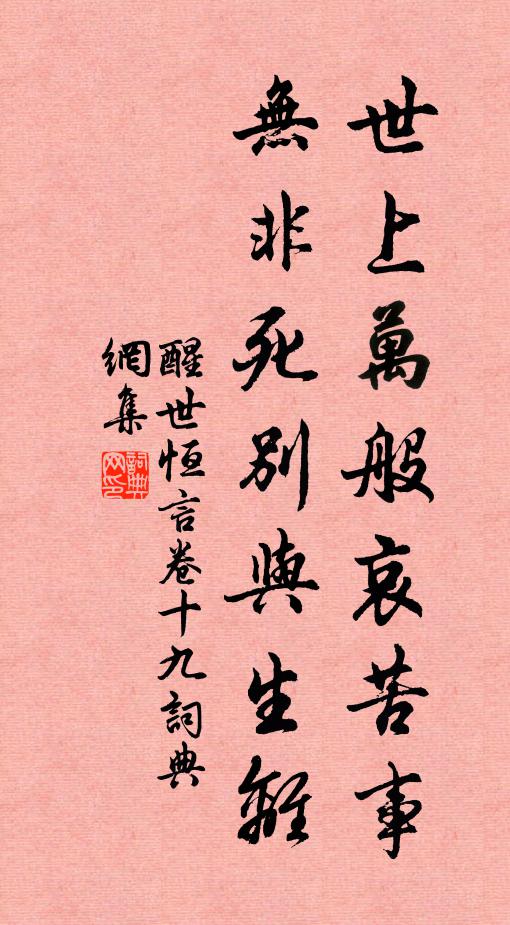 世上萬般哀苦事
無非死別與生離
醒世恒言卷十九詞典
網集
詞典網印